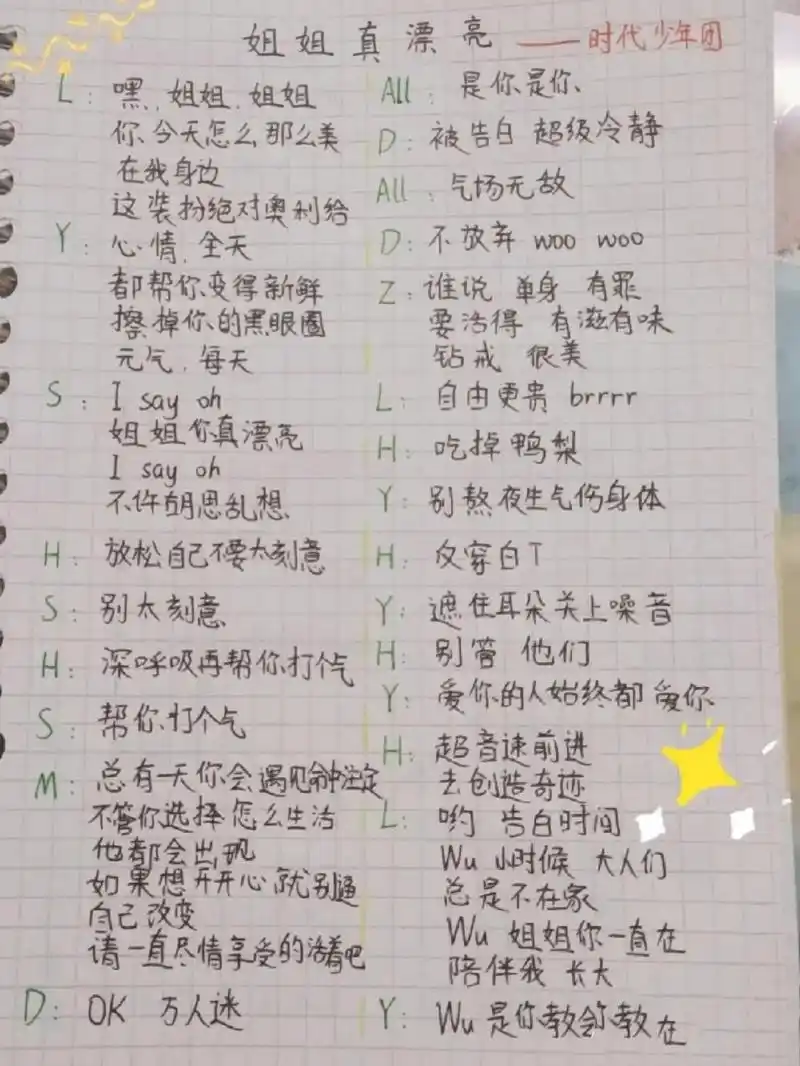 姐姐真漂亮 —— 时代少年团
L: 嘿,姐姐,姐姐
你今天怎么那么美
在我身边
这装扮绝对奥利给
Y: 心情,全天
都帮你变得新鲜
擦掉你的黑眼圈
元气,每天
S: I say oh
姐姐你真漂亮
I say oh
不许胡思乱想
H: 放松自己不要太刻意
S: 别太刻意
H: 深呼吸再帮你打个气
S: 帮你打个气
M: 总有一天你会遇见命中注定
不管你选择怎么生活
他都会出现
如果想开开心就别逼
自己改变
请一直尽情享受的活着吧
D: OK 万人迷
All: 是你是你
D: 被告白 超级冷静
All: 气场无敌
D: 不放弃 woo woo
Z: 谁说 单身 有罪
要活得 有滋有味
钻戒 很美
L: 自由更贵 brrrr
H: 吃掉鸭梨
Y: 别熬夜生气伤身体
H: 仅穿白T
Y: 遮住耳朵关上噪音
H: 别管 他们
Y: 爱你的人始终都爱你
H: 超音速前进
去创造奇迹
L: 哟 告白时间
Wu 小时候 大人们
总是不在家
Wu 姐姐你一直在
陪伴我 长大
Y: Wu 是你教会你教在